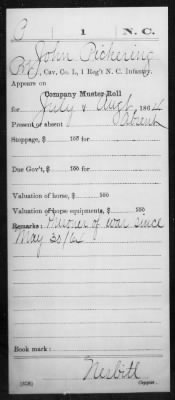 P 1 N. C.
John Pickering
Pvt, Cav. Co. L, 1 Reg't N. C. Infantry.
Appears on
Company Muster Roll
for July & Aug, 1864
Present or absent Absent
Stoppage, $ 100 for
Due Gov't, $ 100 for
Valuation of horse, $ 100
Valuation of horse equipments, $ 100
Remarks: Prisoner of war since
May 30/64
Book mark:
Nesbitt
(858) Copyist.